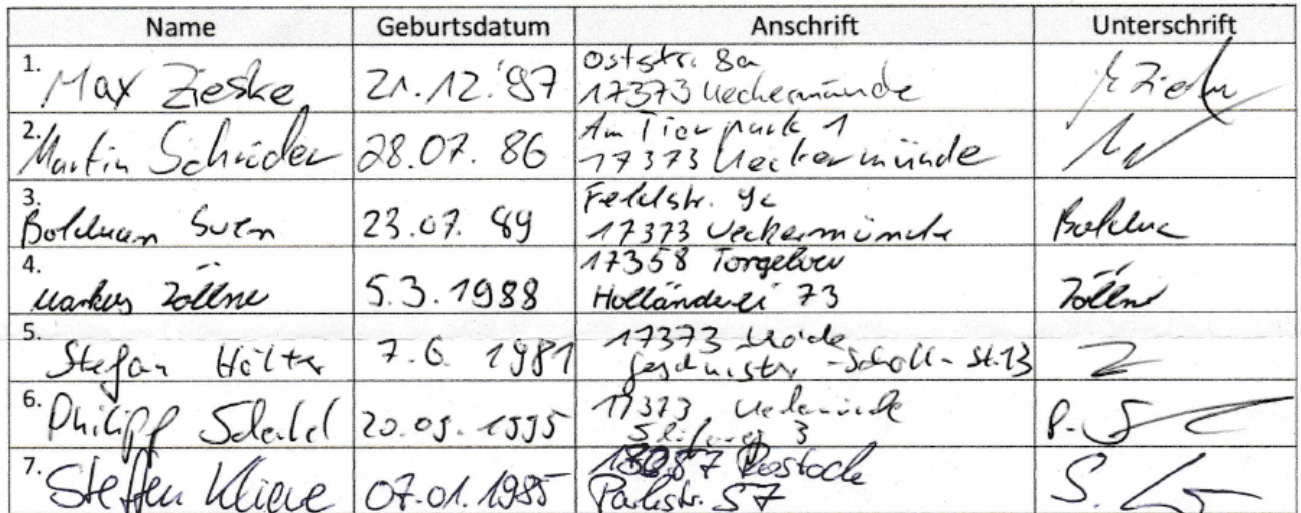 Name Geburtsdatum Anschrift Unterschrift
1. Max Zieske 21.12.'97 Oststr. 8a
17373 Ueckermünde
2. Martin Schröder 28.07.86 Am Tierpark 1
17373 Ueckermünde
3. Sven 23.07.89 Feldstr. 9c
17373 Ueckermünde
4. Markus Zöllner 5.3.1988 17358 Torgelow
Holländerei 73 Zöllner
5. Stefan 7.6. 1981 17373
Geschwister-Scholl-St. 13
6. Philipp 20.09.1995 17373 Ueckermünde
3
7. Steffen 07.01.1985 Rostock
Parkstr. 57